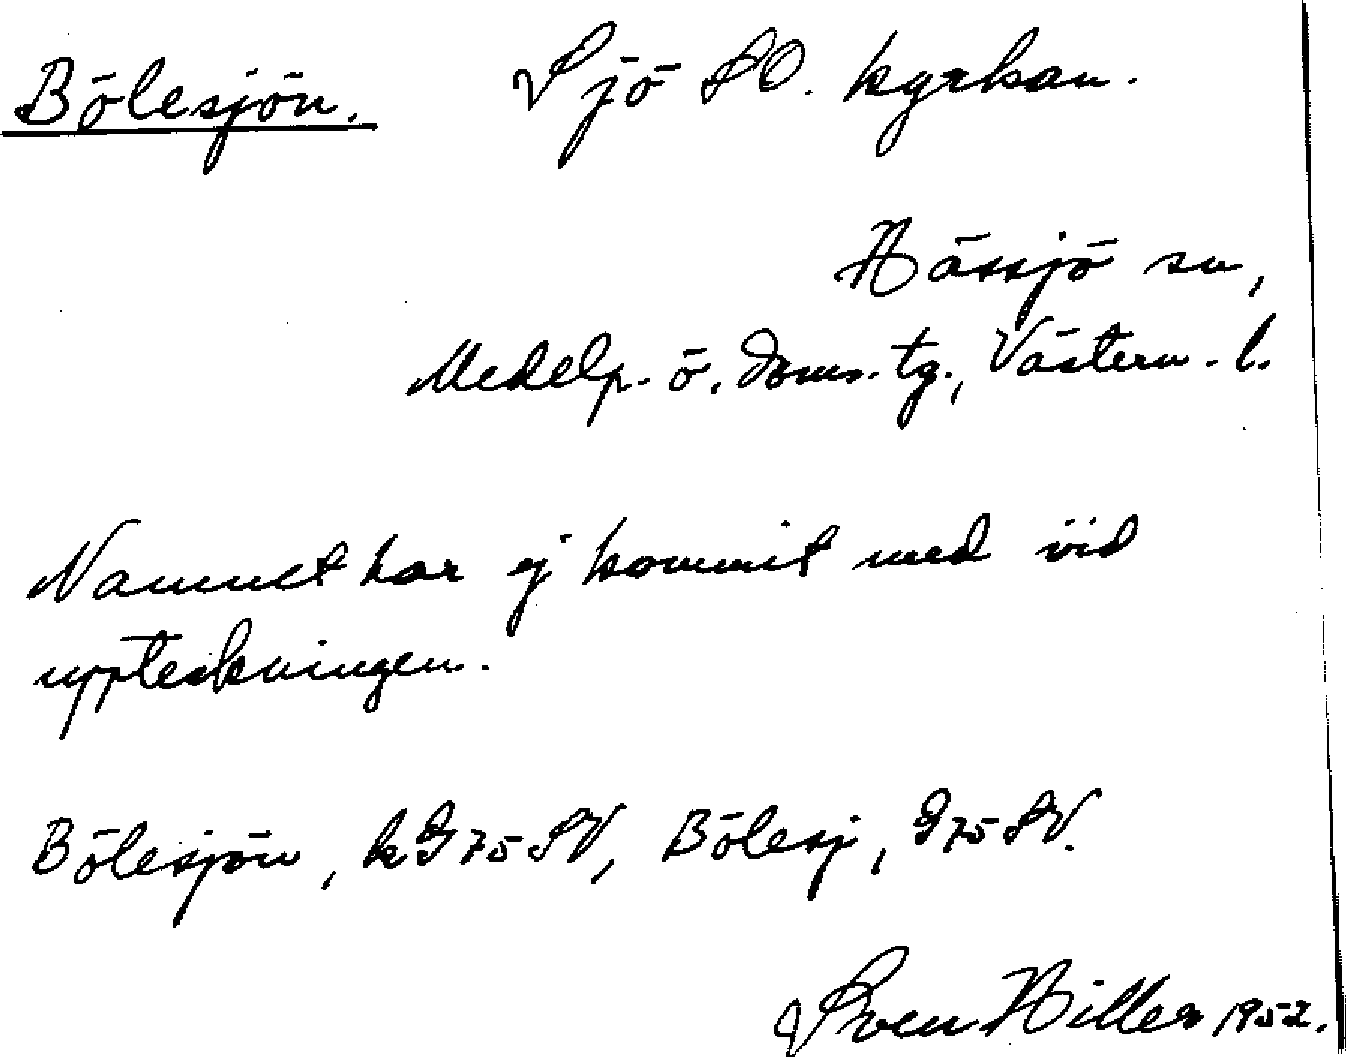 Bölesjön. Sjö SO. kyrkan.
Hässjö sn,
Medelp. ö. doms. tg., Västern. l.
Namnet har ej kommit med vid
uppteckningen.
Bölesjön, kG 75 SV, Bölesj, G 75 SV.
Sven Hiller 1952.